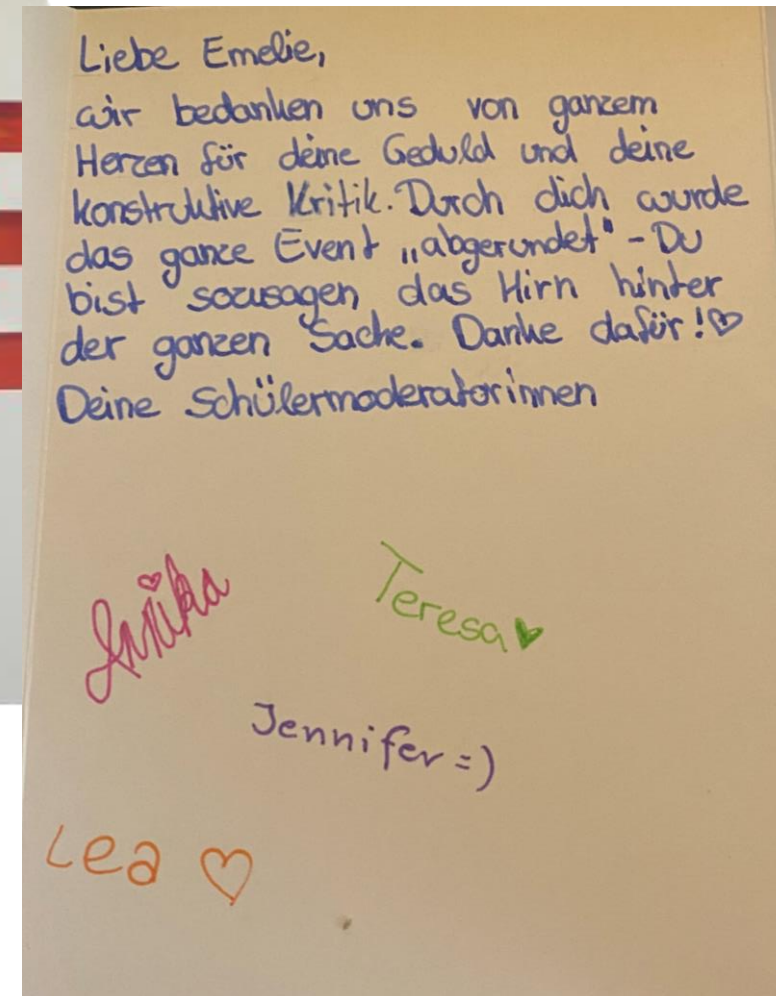 Liebe Emelie,
wir bedanken uns von ganzem
Herzen für deine Geduld und deine
konstruktive Kritik. Durch dich wurde
das ganze Event „abgerundet" - Du
bist sozusagen das Hirn hinter
der ganzen Sache. Danke dafür! ♡
Deine Schülermoderatorinnen
Annika
Teresa ♥
Jennifer =)
Lea ♡